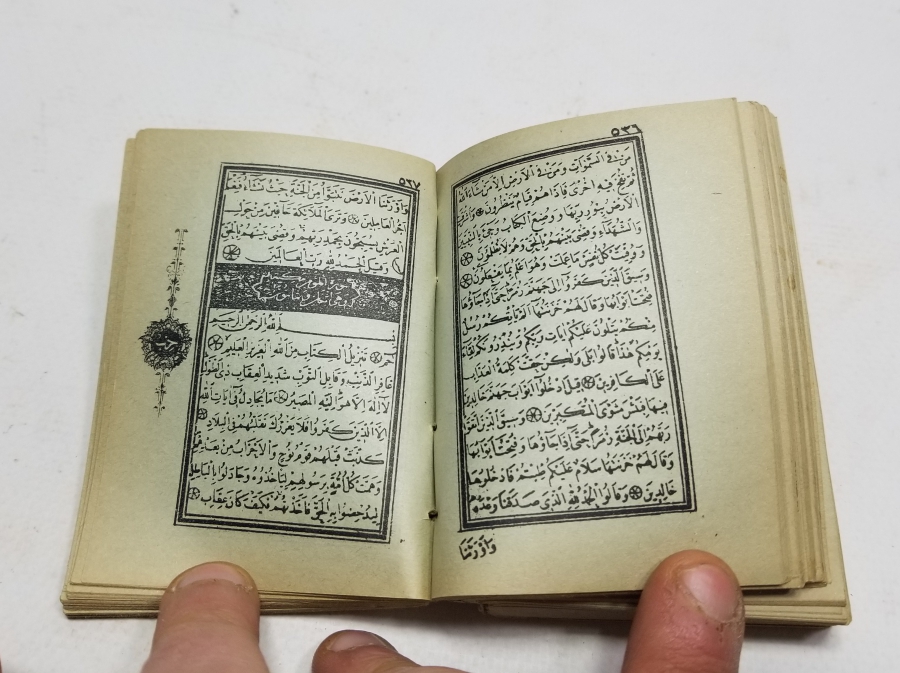 ٥٣٦
مَنْ فِي السَّمٰوَاتِ وَمَنْ فِي الْاَرْضِ اِلَّا مَنْ شَاءَ اللهُ
ثُمَّ نُفِخَ فِيهِ اُخْرٰى فَاِذَا هُمْ قِيَامٌ يَنْظُرُونَ وَاَشْرَقَتِ
الْاَرْضُ بِنُورِ رَبِّهَا وَوُضِعَ الْكِتَابُ وَجِيءَ بِالنَّبِيِّينَ
وَالشُّهَدَاءِ وَقُضِيَ بَيْنَهُمْ بِالْحَقِّ وَهُمْ لَا يُظْلَمُونَ
وَوُفِّيَتْ كُلُّ نَفْسٍ مَا عَمِلَتْ وَهُوَ اَعْلَمُ بِمَا يَفْعَلُونَ
وَسِيقَ الَّذِينَ كَفَرُوا اِلٰى جَهَنَّمَ زُمَرًا حَتّٰى اِذَا جَاؤُهَا
فُتِحَتْ اَبْوَابُهَا وَقَالَ لَهُمْ خَزَنَتُهَا اَلَمْ يَأْتِكُمْ رُسُلٌ
مِنْكُمْ يَتْلُونَ عَلَيْكُمْ اٰيَاتِ رَبِّكُمْ وَيُنْذِرُونَكُمْ لِقَاءَ
يَوْمِكُمْ هٰذَا قَالُوا بَلٰى وَلٰكِنْ حَقَّتْ كَلِمَةُ الْعَذَابِ
عَلَى الْكَافِرِينَ قِيلَ ادْخُلُوا اَبْوَابَ جَهَنَّمَ خَالِدِينَ
فِيهَا فَبِئْسَ مَثْوَى الْمُتَكَبِّرِينَ وَسِيقَ الَّذِينَ اتَّقَوْا
رَبَّهُمْ اِلَى الْجَنَّةِ زُمَرًا حَتّٰى اِذَا جَاؤُهَا وَفُتِحَتْ اَبْوَابُهَا
وَقَالَ لَهُمْ خَزَنَتُهَا سَلَامٌ عَلَيْكُمْ طِبْتُمْ فَادْخُلُوهَا
خَالِدِينَ وَقَالُوا الْحَمْدُ لِلّٰهِ الَّذِي صَدَقَنَا وَعْدَهُ
وَاَوْرَثَنَا
٥٣٧
وَاَوْرَثَنَا الْاَرْضَ نَتَبَوَّأُ مِنَ الْجَنَّةِ حَيْثُ نَشَاءُ فَنِعْمَ
اَجْرُ الْعَامِلِينَ وَتَرَى الْمَلَائِكَةَ حَافِّينَ مِنْ حَوْلِ
الْعَرْشِ يُسَبِّحُونَ بِحَمْدِ رَبِّهِمْ وَقُضِيَ بَيْنَهُمْ بِالْحَقِّ
وَقِيلَ الْحَمْدُ لِلّٰهِ رَبِّ الْعَالَمِينَ
بِسْمِ اللهِ الرَّحْمٰنِ الرَّحِيمِ
حٰمٓ تَنْزِيلُ الْكِتَابِ مِنَ اللهِ الْعَزِيزِ الْعَلِيمِ
غَافِرِ الذَّنْبِ وَقَابِلِ التَّوْبِ شَدِيدِ الْعِقَابِ ذِي الطَّوْلِ
لَا اِلٰهَ اِلَّا هُوَ اِلَيْهِ الْمَصِيرُ مَا يُجَادِلُ فِي اٰيَاتِ اللهِ
اِلَّا الَّذِينَ كَفَرُوا فَلَا يَغْرُرْكَ تَقَلُّبُهُمْ فِي الْبِلَادِ
كَذَّبَتْ قَبْلَهُمْ قَوْمُ نُوحٍ وَالْاَحْزَابُ مِنْ بَعْدِهِمْ
وَهَمَّتْ كُلُّ اُمَّةٍ بِرَسُولِهِمْ لِيَأْخُذُوهُ وَجَادَلُوا بِالْبَاطِلِ
لِيُدْحِضُوا بِهِ الْحَقَّ فَاَخَذْتُهُمْ فَكَيْفَ كَانَ عِقَابِ
حزب